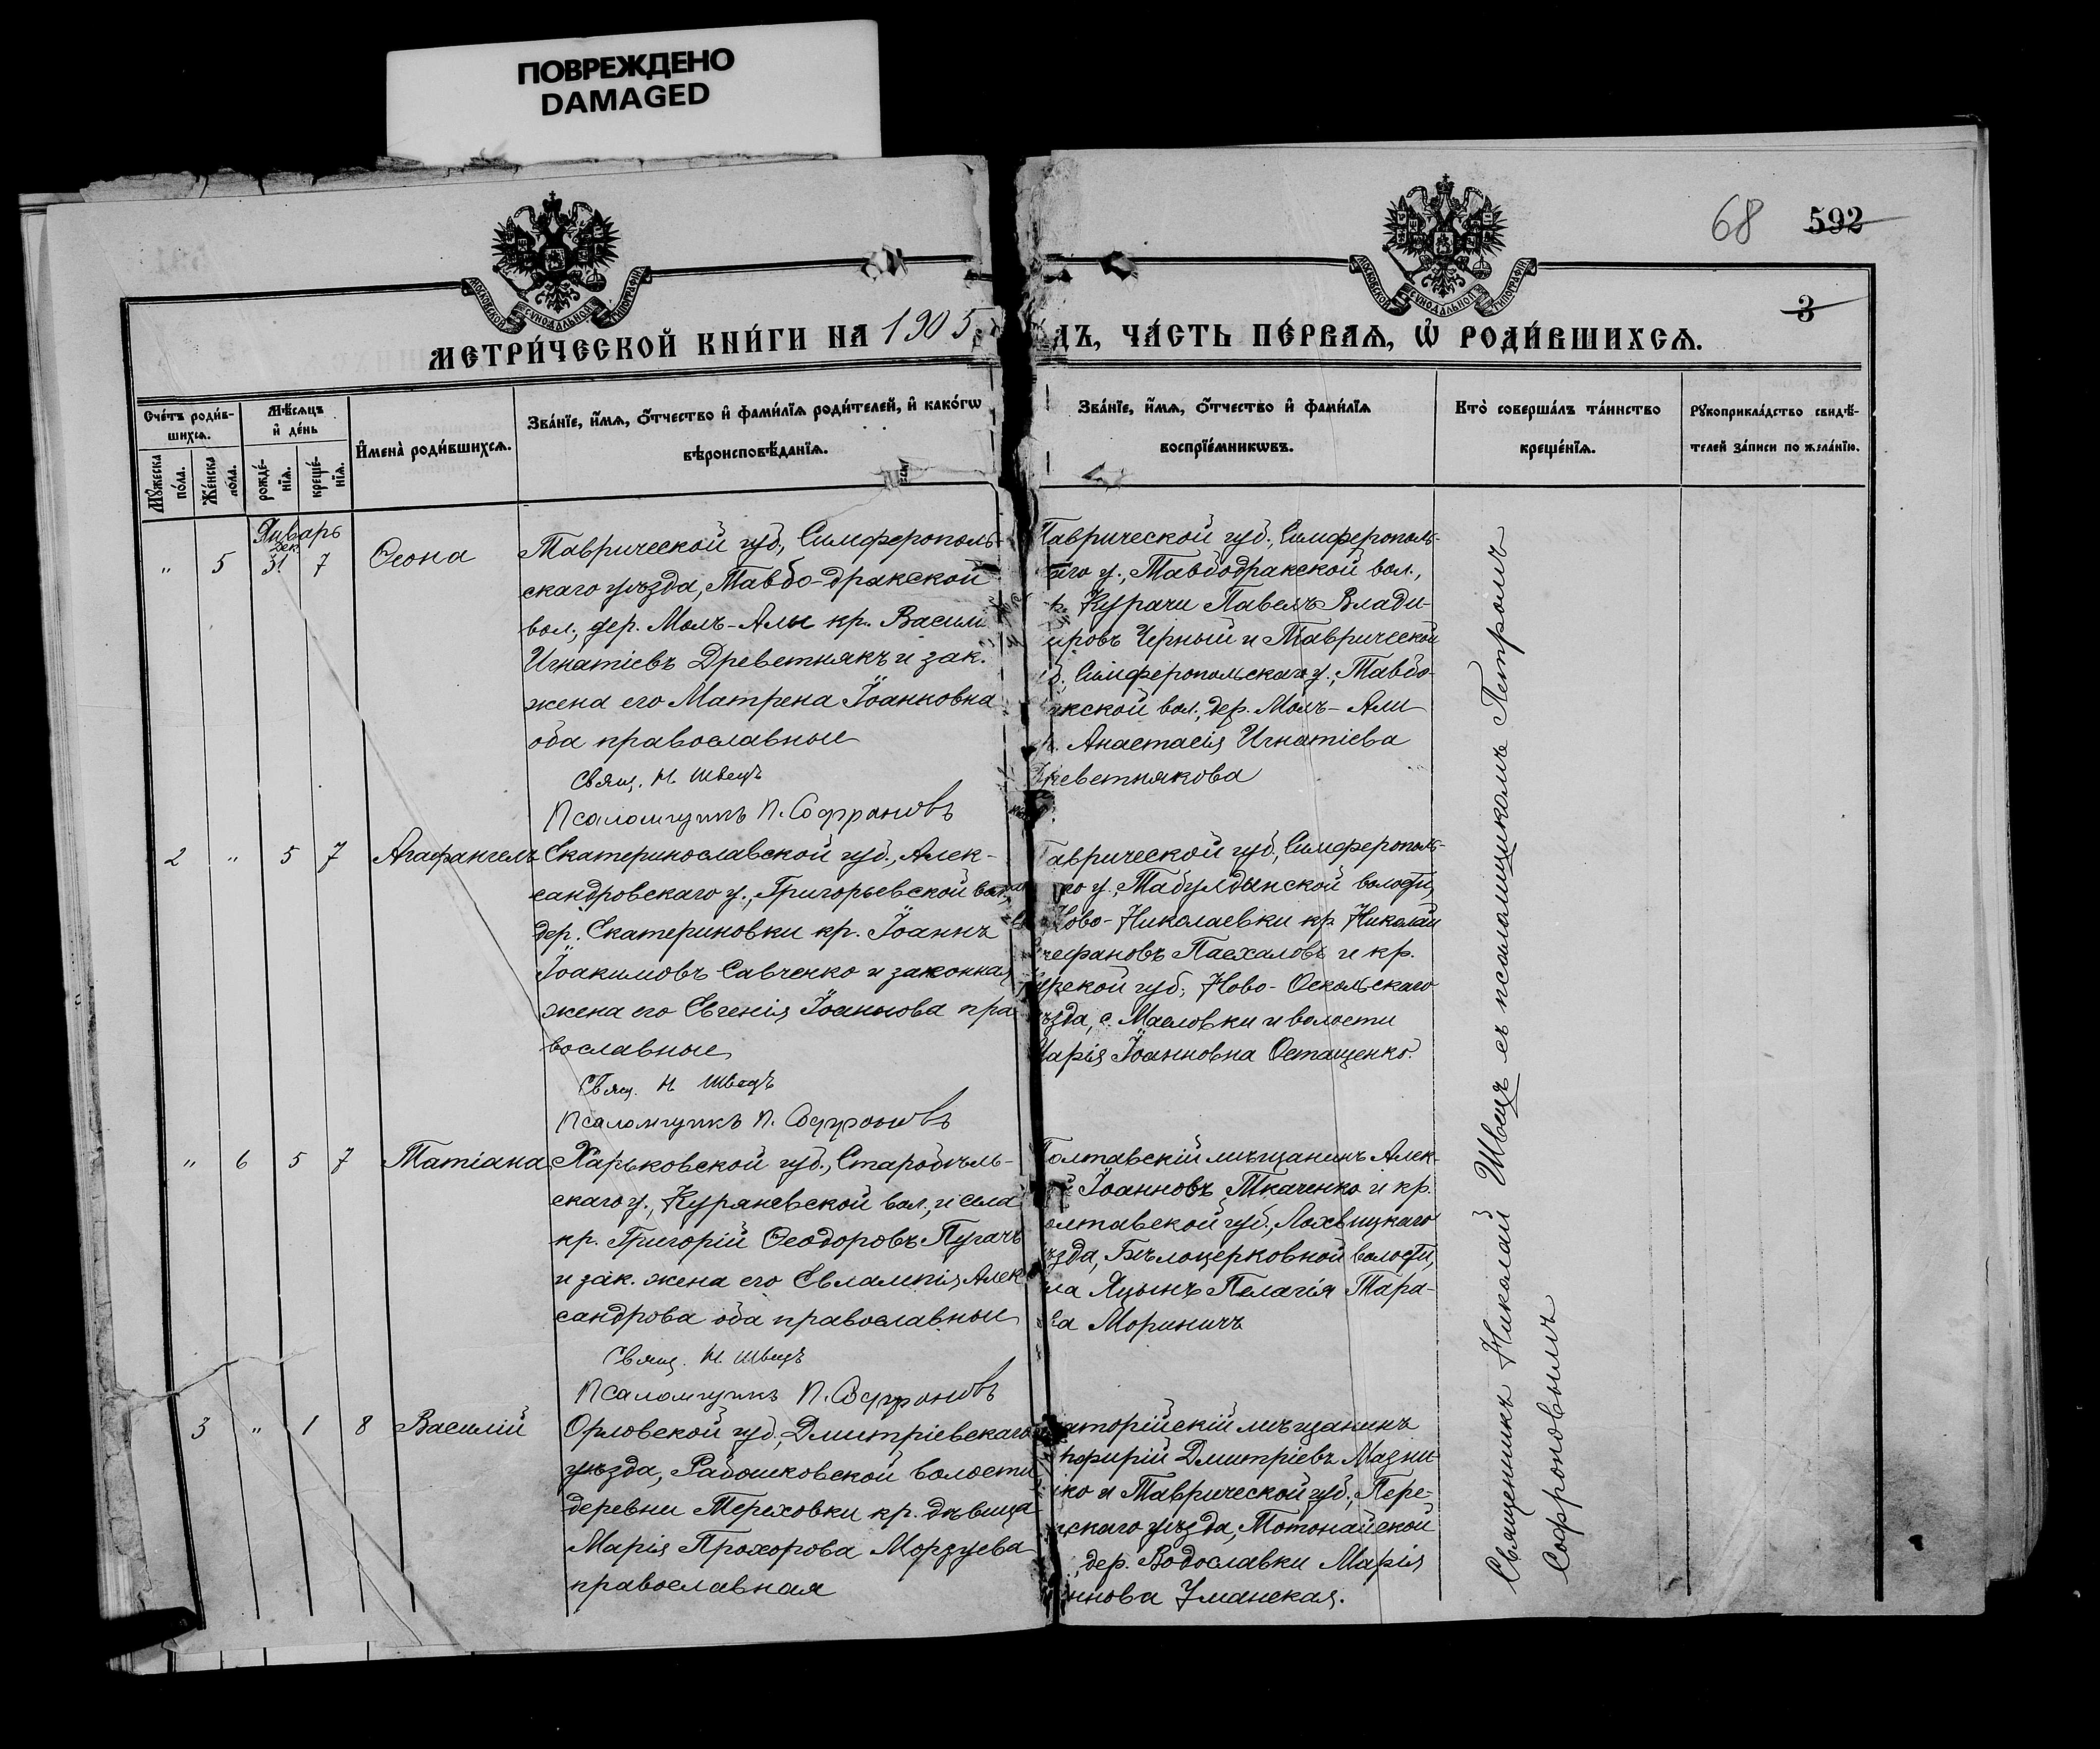 ПОВРЕЖДЕНО
DAMAGED
68 592
3
МОСКОВСКОЙ СѴНОДАЛЬНОЙ ТИПОГРАФІИ
МОСКОВСКОЙ СѴНОДАЛЬНОЙ ТИПОГРАФІИ
МЕТРИ́ЧЕСКОЙ КНИ́ГИ НА 1905
ДЪ, ЧА́СТЬ ПЕ́РВАѦ, Ѡ҆ РОДИ́ВШИХСѦ.
Сче́тъ роди́в-
шихсѧ.
Мꙋ́жеска
по́ла.
Же́нска
по́ла.
Мѣ́сѧцъ
и҆ де́нь
рожде́-
нїѧ.
креще́-
нїѧ.
И҆мена̀ роди́вшихсѧ.
Зва́нїе, и҆́мѧ, ѻ҆́тчество и҆ фами́лїѧ роди́телей, и҆ како́гѡ
вѣроисповѣ́данїѧ.
Зва́нїе, и҆́мѧ, ѻ҆́тчество и҆ фами́лїѧ
воспрїе́мникѡвъ.
Кто̀ соверша́лъ та́инство
креще́нїѧ.
Рꙋкоприкла́дство свидѣ́-
телей за́писи по жела́нїю.
Январь
Дек.
" 5 31 7 Ѳеона
Таврической губ., Симферополь-
скаго уѣзда, Тавбо-дракской
вол., дер. Молъ-Алы кр. Васил
Игнатіевъ Древетнякъ и зак.
жена его Матрена Іоанновна
оба православные
Свящ. Н. Швецъ
Псаломщикъ П. Софроновъ
Таврической губ., Симферополь-
аго у., Тавбодракской вол.,
Курачи Павелъ Влади-
ировъ Черный и Таврической
б., Симферопольскаго у., Тавбо-
кской вол., дер. Молъ-Али
р. Анастасія Игнатіева
Древетнякова
2 " 5 7 Агафангелъ
Екатеринославской губ., Алек-
сандровскаго у., Григорьевской вол.,
дер. Екатериновки кр. Іоаннъ
Іоакимовъ Савченко и законная
жена его Евгенія Іоаннова пра
вославные
Свящ. Н. Швецъ
Псаломщикъ П. Софроновъ
Таврической губ., Симферополь-
го у., Табулдынской волости,
Ново-Николаевки кр. Николай
тефановъ Пасхаловъ и кр.
урской губ., Ново-Оскольскаго
ѣзда, с. Масловки и волости
Марія Іоанновна Остащенко.
" 6 5 7 Татіана
Харьковской губ., Старобѣль-
скаго у., Куряневской вол., и села
кр. Григорій Ѳеодоровъ Пугачъ
и зак. жена его Евлампія Алек
сандрова оба православные
Свящ. Н. Швецъ
Псаломщикъ П. Софроновъ
Полтавскій мѣщанинъ Алек-
й Іоанновъ Ткаченко и кр.
олтавской губ., Лохвицкаго
ѣзда, Бѣлоцерковной волости,
ла Яцынъ Пелагія Тара-
ва Мориничъ
3 " 1 8 Василій
Орловской губ., Дмитріевскаго
уѣзда, Рабошковской волости
деревни Тереховки кр. дѣвица
Марія Прохорова Морзуева
православная
аторійскій мѣщанинъ
рфирій Дмитріевъ Мазни
нко и Таврической губ., Пере-
пскаго уѣзда, Тотонайской
, дер. Водославки Марія
ннова Уманская.
Священникъ Николай Швецъ съ псаломщикомъ Петромъ
Софроновымъ